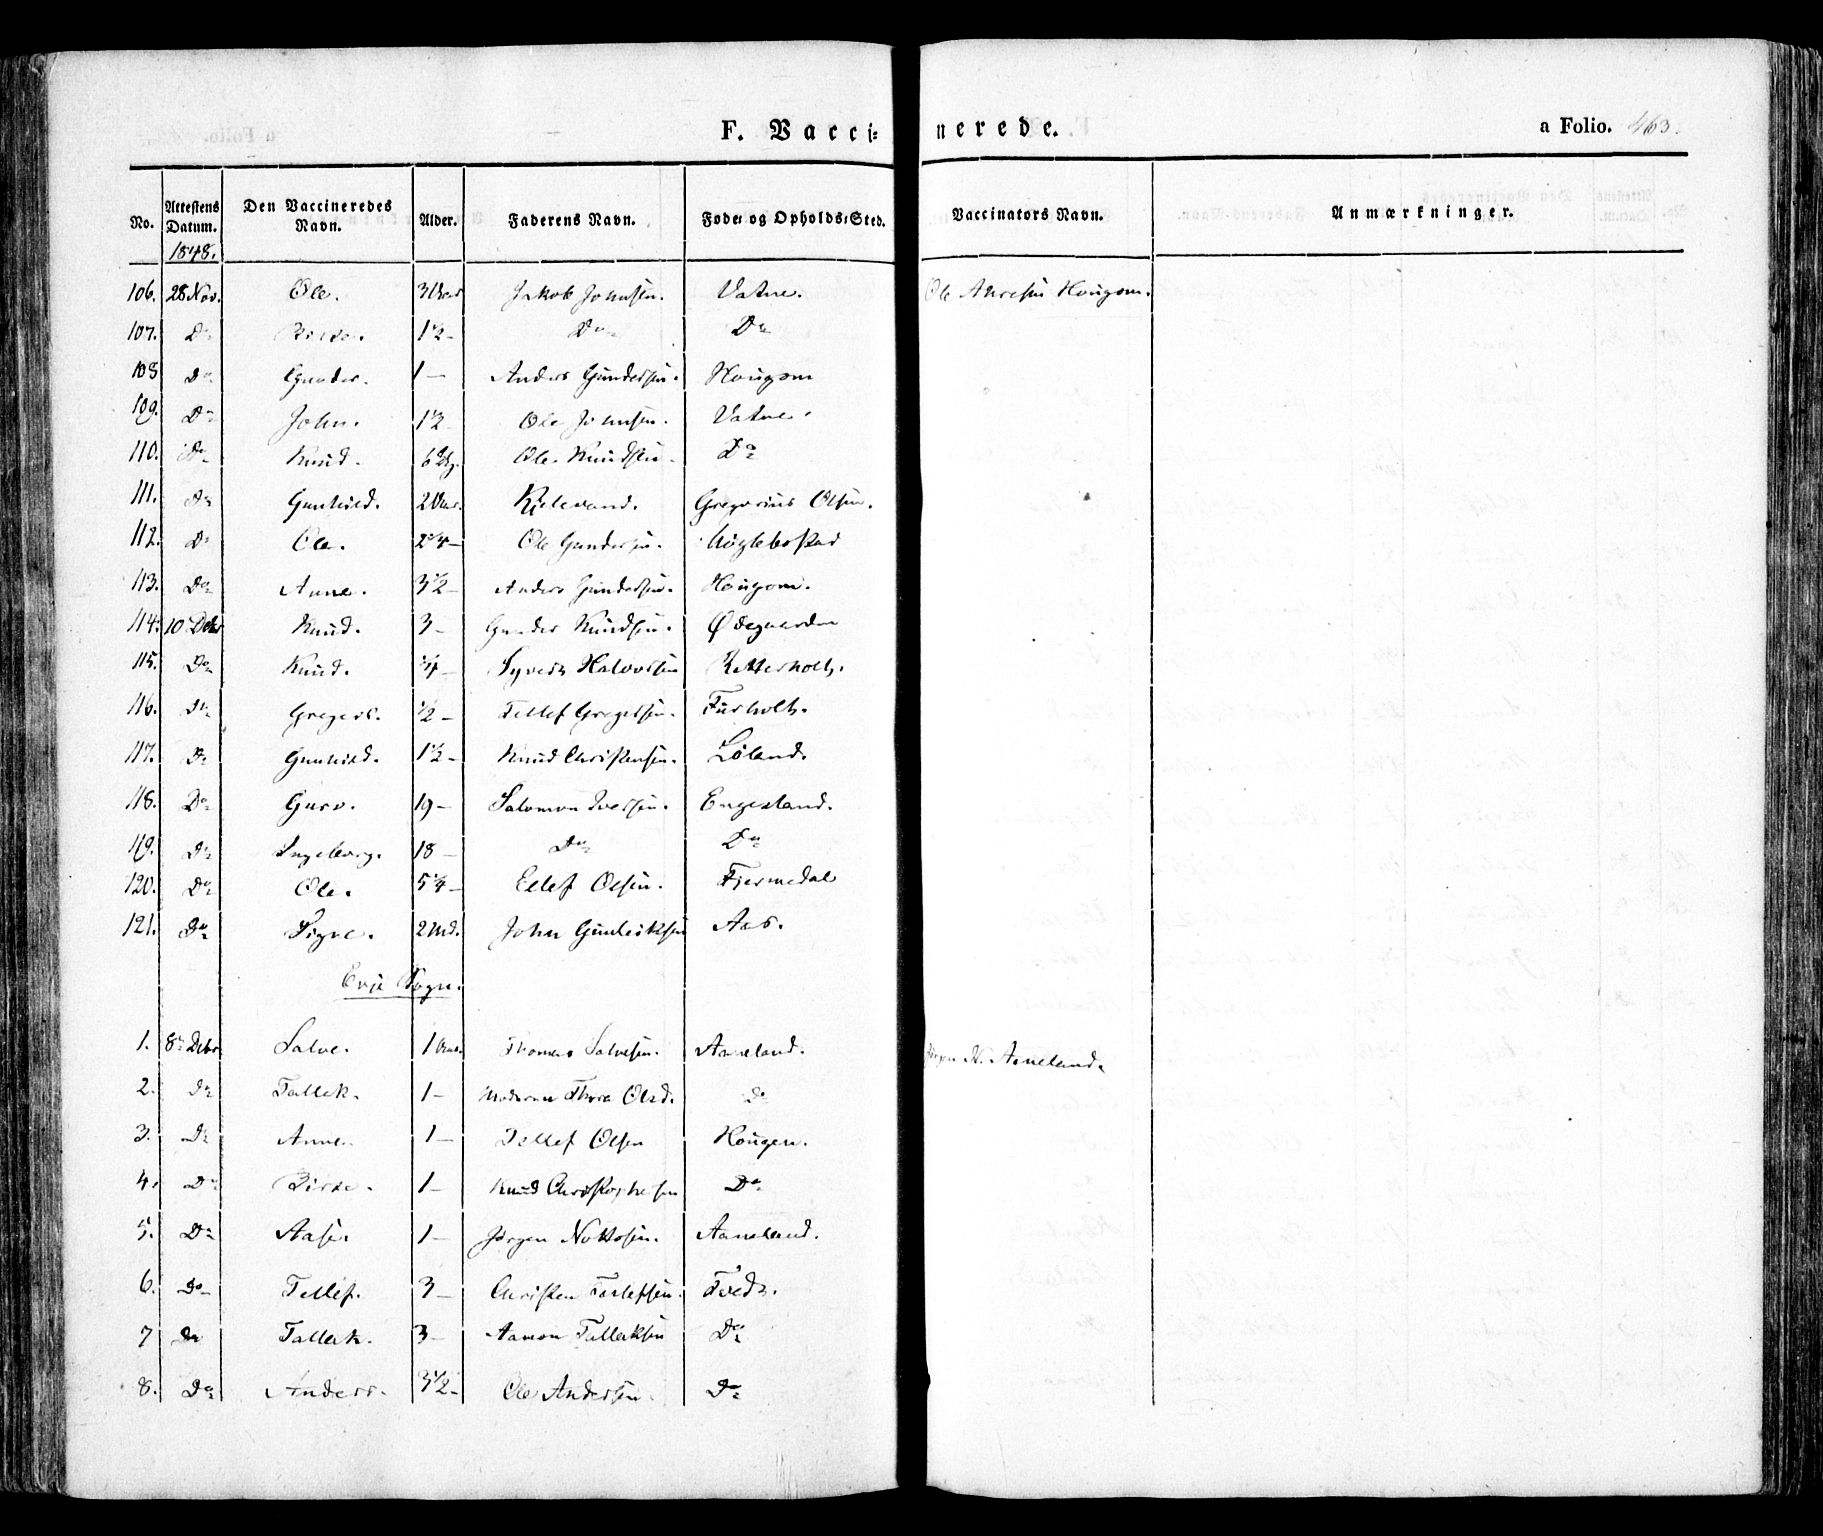 F. Vacci= nerede. a Folio. 463.
No. Attestens Datum. Den Vaccineredes Navn. Alder. Faderens Navn. Føde= og Opholds=Sted. Vaccinators Navn. Anmærkninger.
1848.
106. 28 Nov. Ole. 3 Aar Jakob Johnsen. Vatne. Ole Hougom.
107. Do 1½ - Do Do
108 Do Gunder. 1 - Anders Gundersen. Hougom
109. Do John. 1½ Ole Johnsen. Vatne.
110. Do Knud. 6 Ole Knudsen Do
111. Do Gunhild. 2 Aar. Kjelevand. Gregorius Olsen.
112. Do Ole. 2¾ - Ole Gundersen.
113. Do Anne. 3½ - Anders Gundersen. Hougom.
114. 10 Debr Knud. 3 - Gunder Knudsen. Ødegaarden
115. Do Knud. ¼ - Syvert Halvorsen Retterholt.
116. Do Gregers. ½ - Tellef Gregersen. Furholt.
117. Do Gunhild. 1½ - Knud Christensen. Löland.
118. Do Guro. 19 - Salomon Iversen. Engesland.
119. Do Ingeborg. 18 - Do Do
120. Do Ole. 5¼ - Ellef Olsen. Fjermedal
121. Do Signe. 2 Md. John Aas.
Evje Sogn.
1. 8de Debr Salve. 1 Aar. Thomas Salvesen. Aaneland. Jørgen N. Aaneland.
2. Do Tallek. 1 - Moderen Thore Olsd. do
3. Do Anne. 1 - Tellef Olsen Hougen.
4. Do Birte. 1 - Knud Christophersen Do
5. Do Aase. 1 - Jørgen Aaneland.
6. Do Tellef. 3 - Christen Tvedt.
7 Do Tallak. 3 - Aamon Tallaksen Do
8. Do Anders. 3½ - Ole Andersen. Do